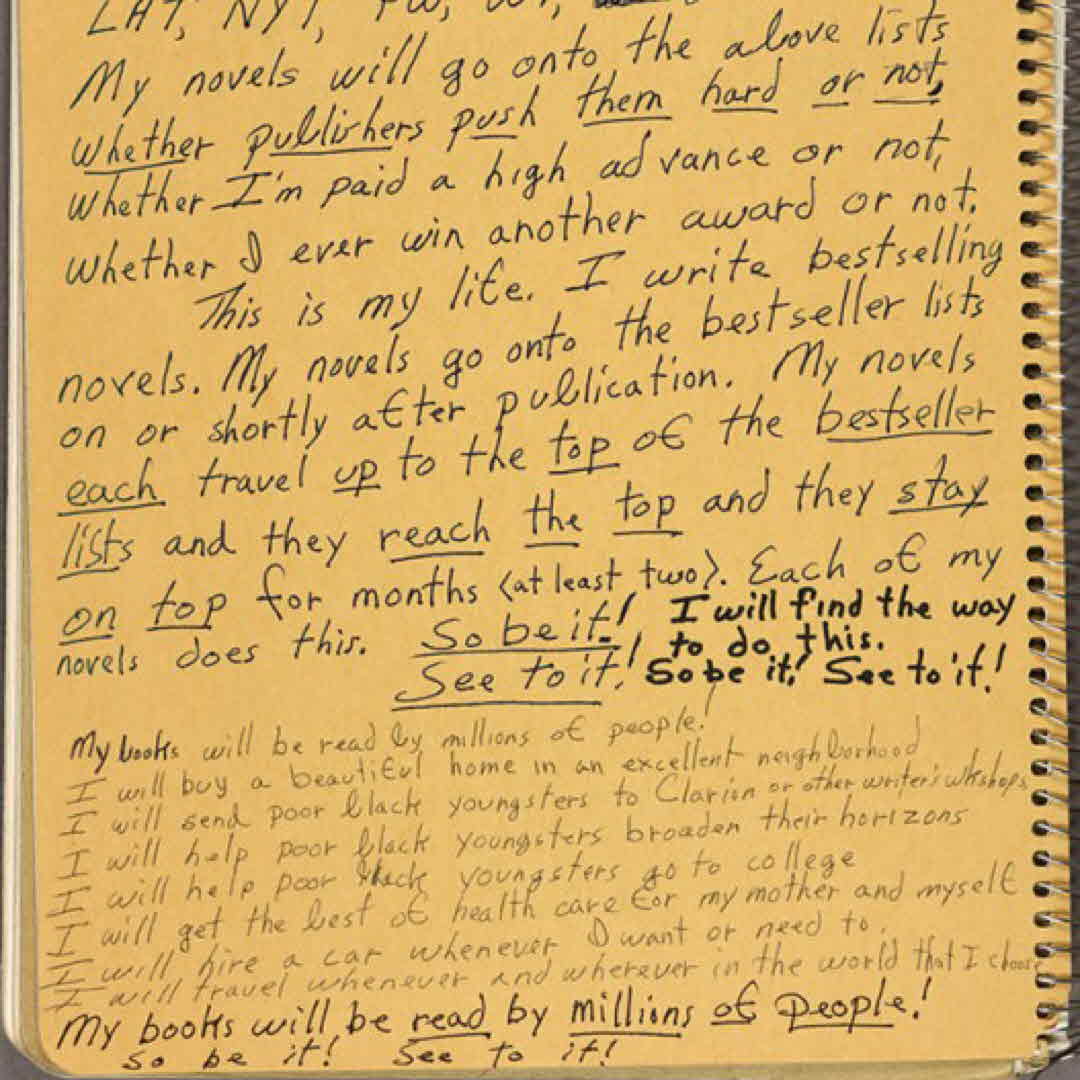 LAT, NYT, PW, WP,
My novels will go onto the above lists
whether publishers push them hard or not,
whether I'm paid a high advance or not,
whether I ever win another award or not.
This is my life. I write bestselling
novels. My novels go onto the bestseller lists
on or shortly after publication. My novels
each travel up to the top of the bestseller
lists and they reach the top and they stay
on top for months (at least two). Each of my
novels does this. So be it! I will find the way
See to it! to do this.
So be it! See to it!
My books will be read by millions of people!
I will buy a beautiful home in an excellent neighborhood
I will send poor black youngsters to Clarion or other writer's wkshops
I will help poor black youngsters broaden their horizons
I will help poor black youngsters go to college
I will get the best of health care for my mother and myself
I will hire a car whenever I want or need to.
I will travel whenever and wherever in the world that I choose
My books will be read by millions of people!
So be it! See to it!